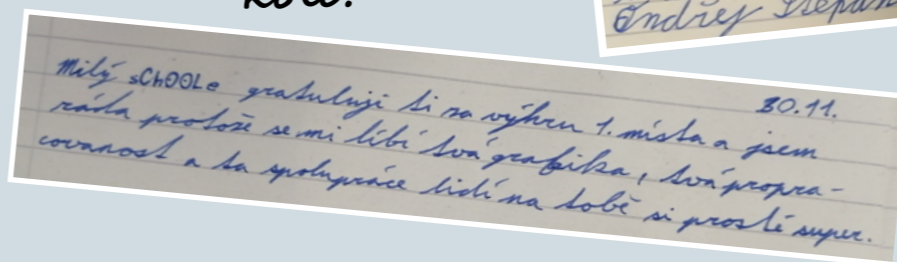 kolo.
Ondřej Štěpán
30.11.
Milý sChOOLe gratuluji ti na výhru 1. místa a jsem
ráda protože se mi líbí tvá grafika, tvá propra-
covanost a ta spolupráce lidí na tobě si prostě super.